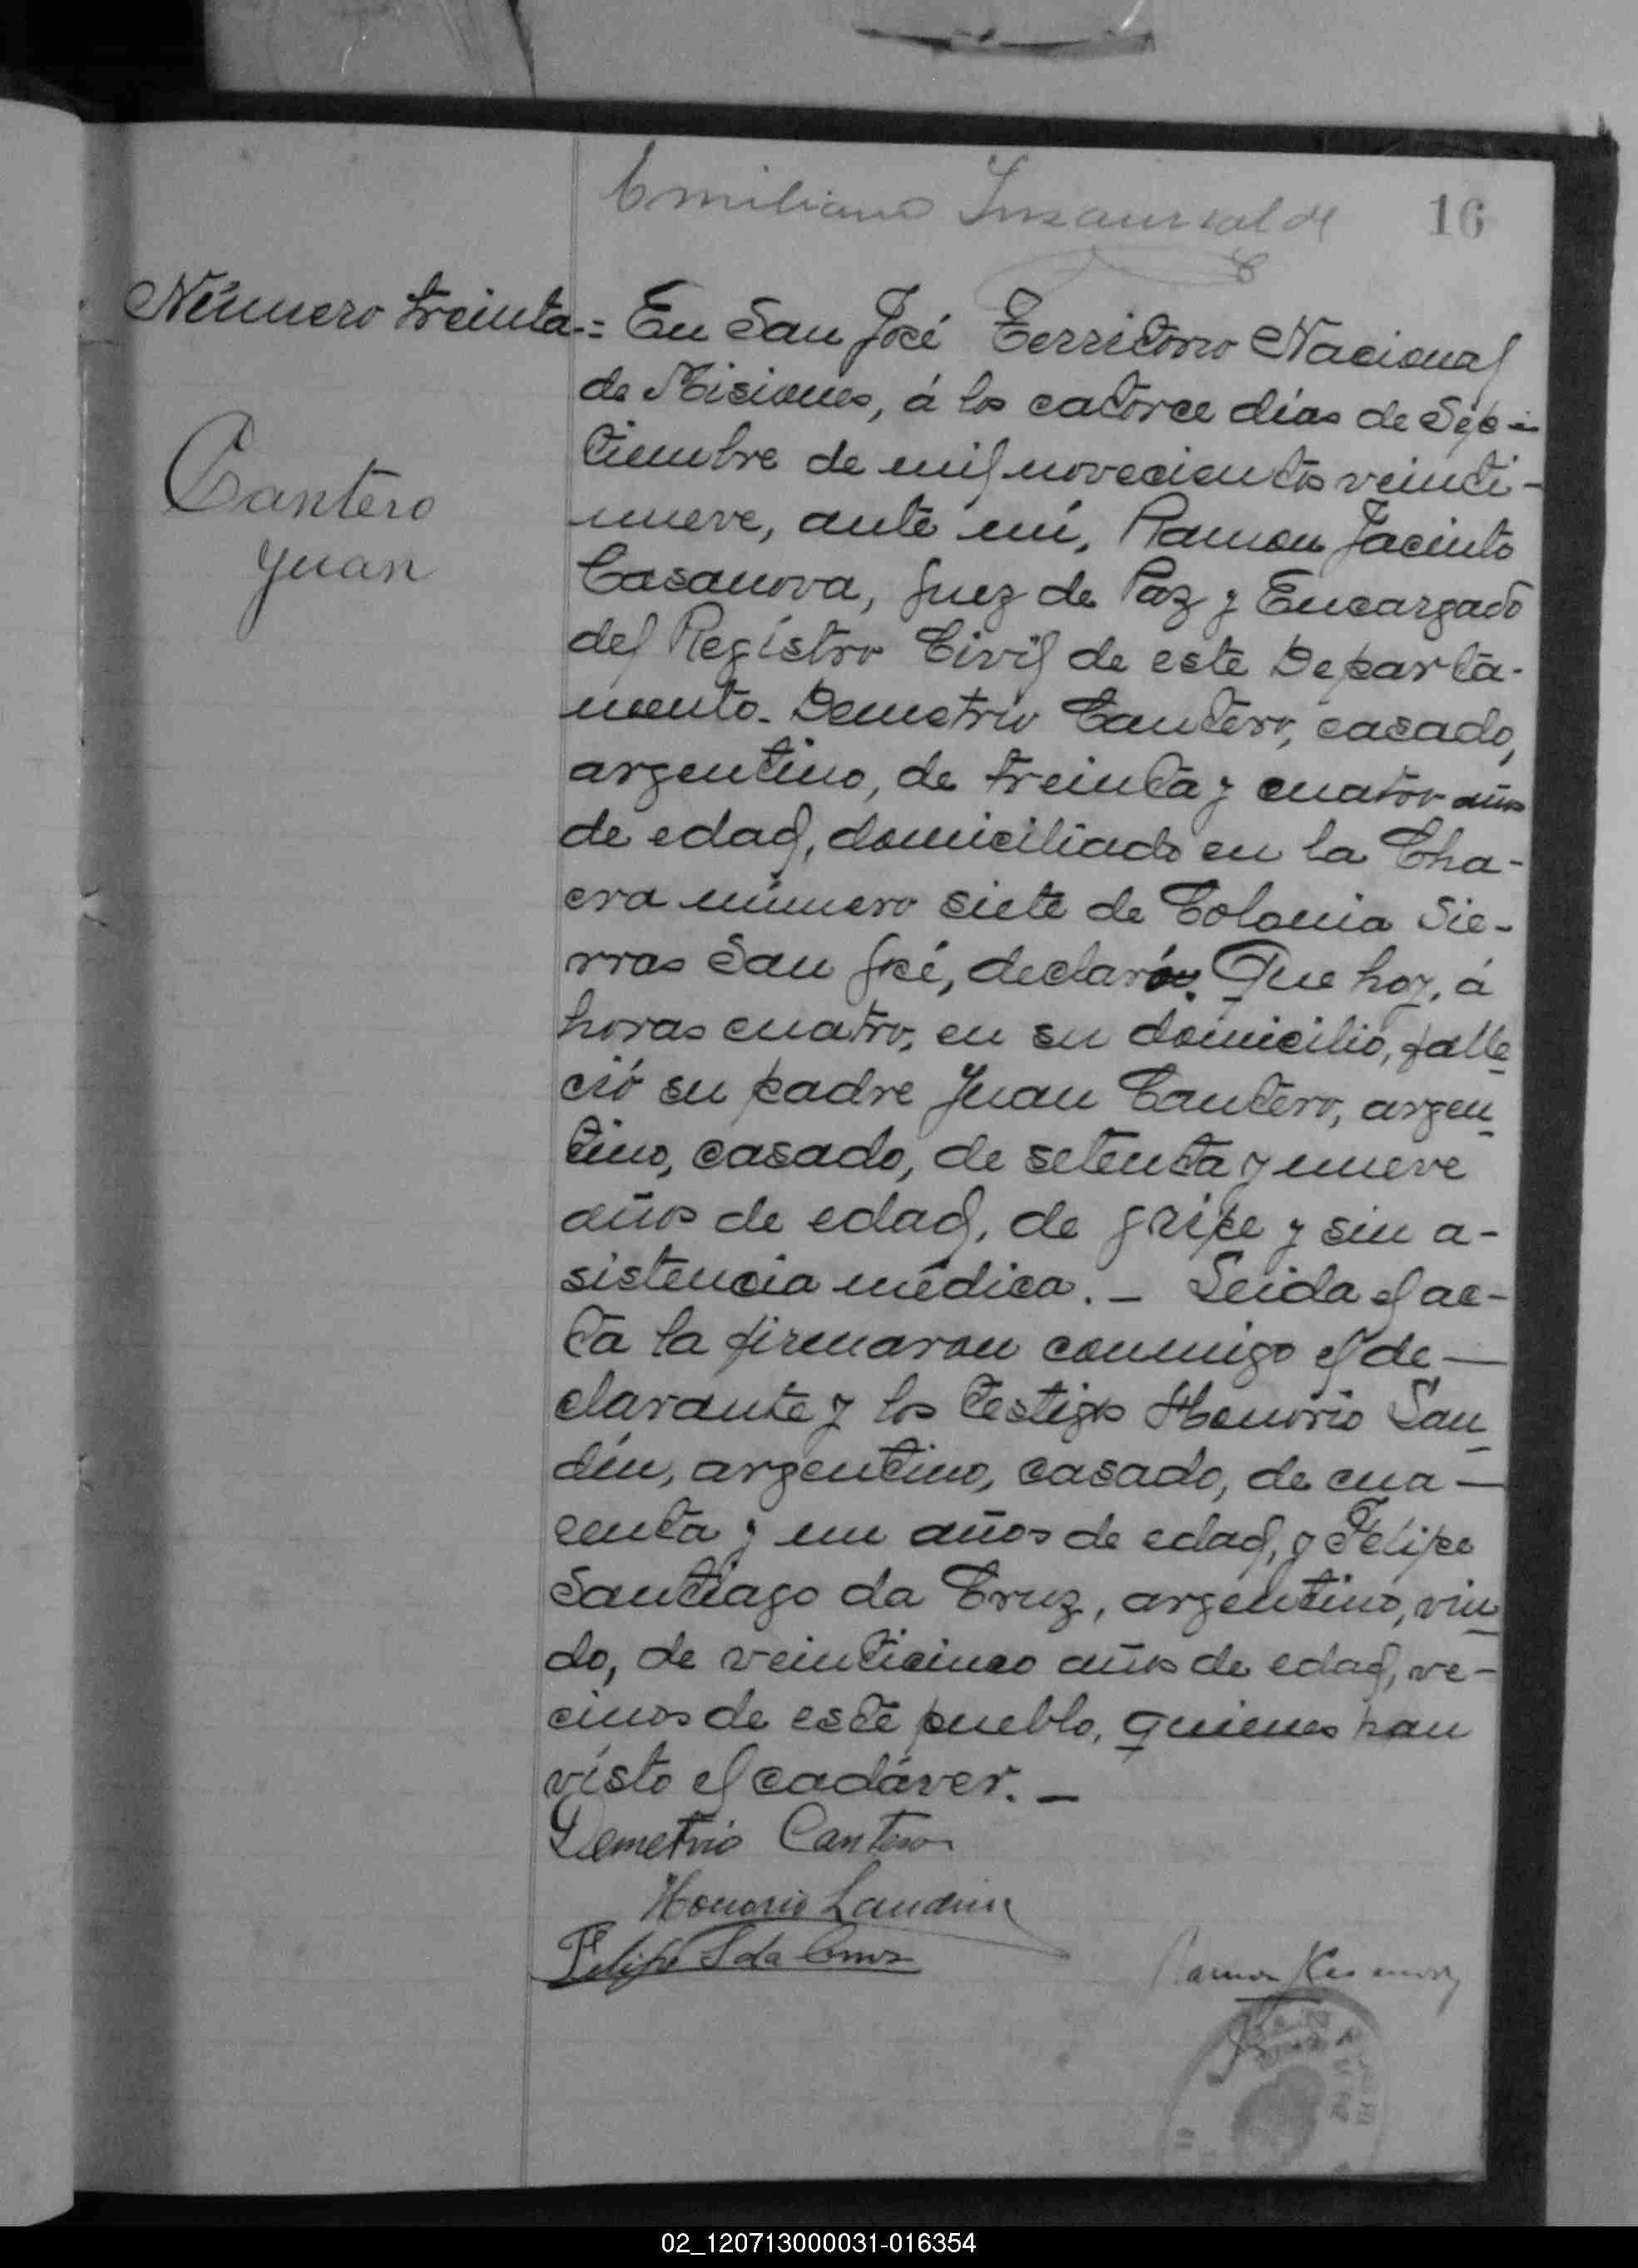 Emiliano Insaurralde
16
Número treinta.= En San José Territorio Nacional
Cantero
Juan
de Misiones, á los catorce días de Sep-
tiembre de mil novecientos veinti-
nueve, ante mí, Ramon Jacinto
Casanova, Juez de Paz y Encargado
del Regístro Civil de este Departa-
mento. Demetrio Cantero, casado,
argentino, de treinta y cuatro años
de edad, domiciliado en la Cha-
cra número siete de Colonia Sie-
rras San José, declaró: Que hoy, á
horas cuatro, en su domicilio, falle
ció su padre Juan Cantero, argen
tino, casado, de setenta y nueve
años de edad, de gripe y sin a-
sistencia médica. _ Leida el ac-
ta la firmaron conmigo el de—
clarante y los testigos Honorio Lan
dín, argentino, casado, de cua—
renta y un años de edad, y Felipe
Santiago da Cruz, argentino, viu
do, de veinticinco años de edad, ve-
cinos de este pueblo, quienes han
visto el cadáver. _
Demetrio Cantero
Honorio Landin
Felipe S da Cruz
Ramon
02_120713000031-016354